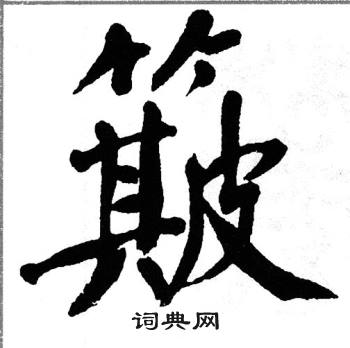 簸
词典网